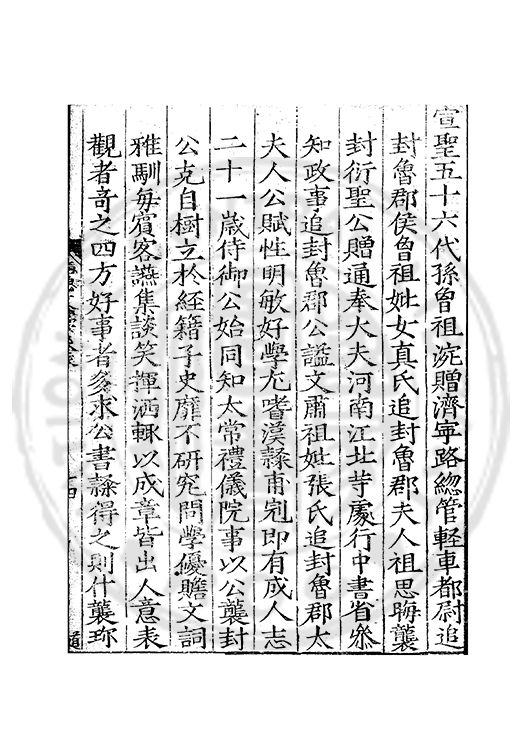 宣聖五十六代孫曾祖浣贈濟寧路緫管軽車都尉追
封魯郡侯曾祖妣女真氏追封魯郡夫人祖思晦襲
封衍聖公贈通奉大夫河南江北等處行中書省叅
知政事追封魯郡公諡文肅祖妣張氏追封魯郡太
夫人公賦性明敏好學尤嗜漢隸甫冠即有成人志
二十一歲侍御公始同知太常禮儀院事以公襲封
公克自樹立於經籍子史靡不研究問學優贍文詞
雅馴毎賓客讌集談笑揮洒輙以成章皆出人意表
觀者奇之四方好事者多求公書隸得之則什襲珎